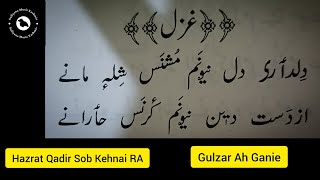 غزل
دِلدآری دل نیوٗنَم مُشتَس شِلہِ مانے
ازدَست دین نیوٗنَم کَرنَس حآرانے
Hazrat Qadir Sob Kehnai RA
Gulzar Ah Ganie